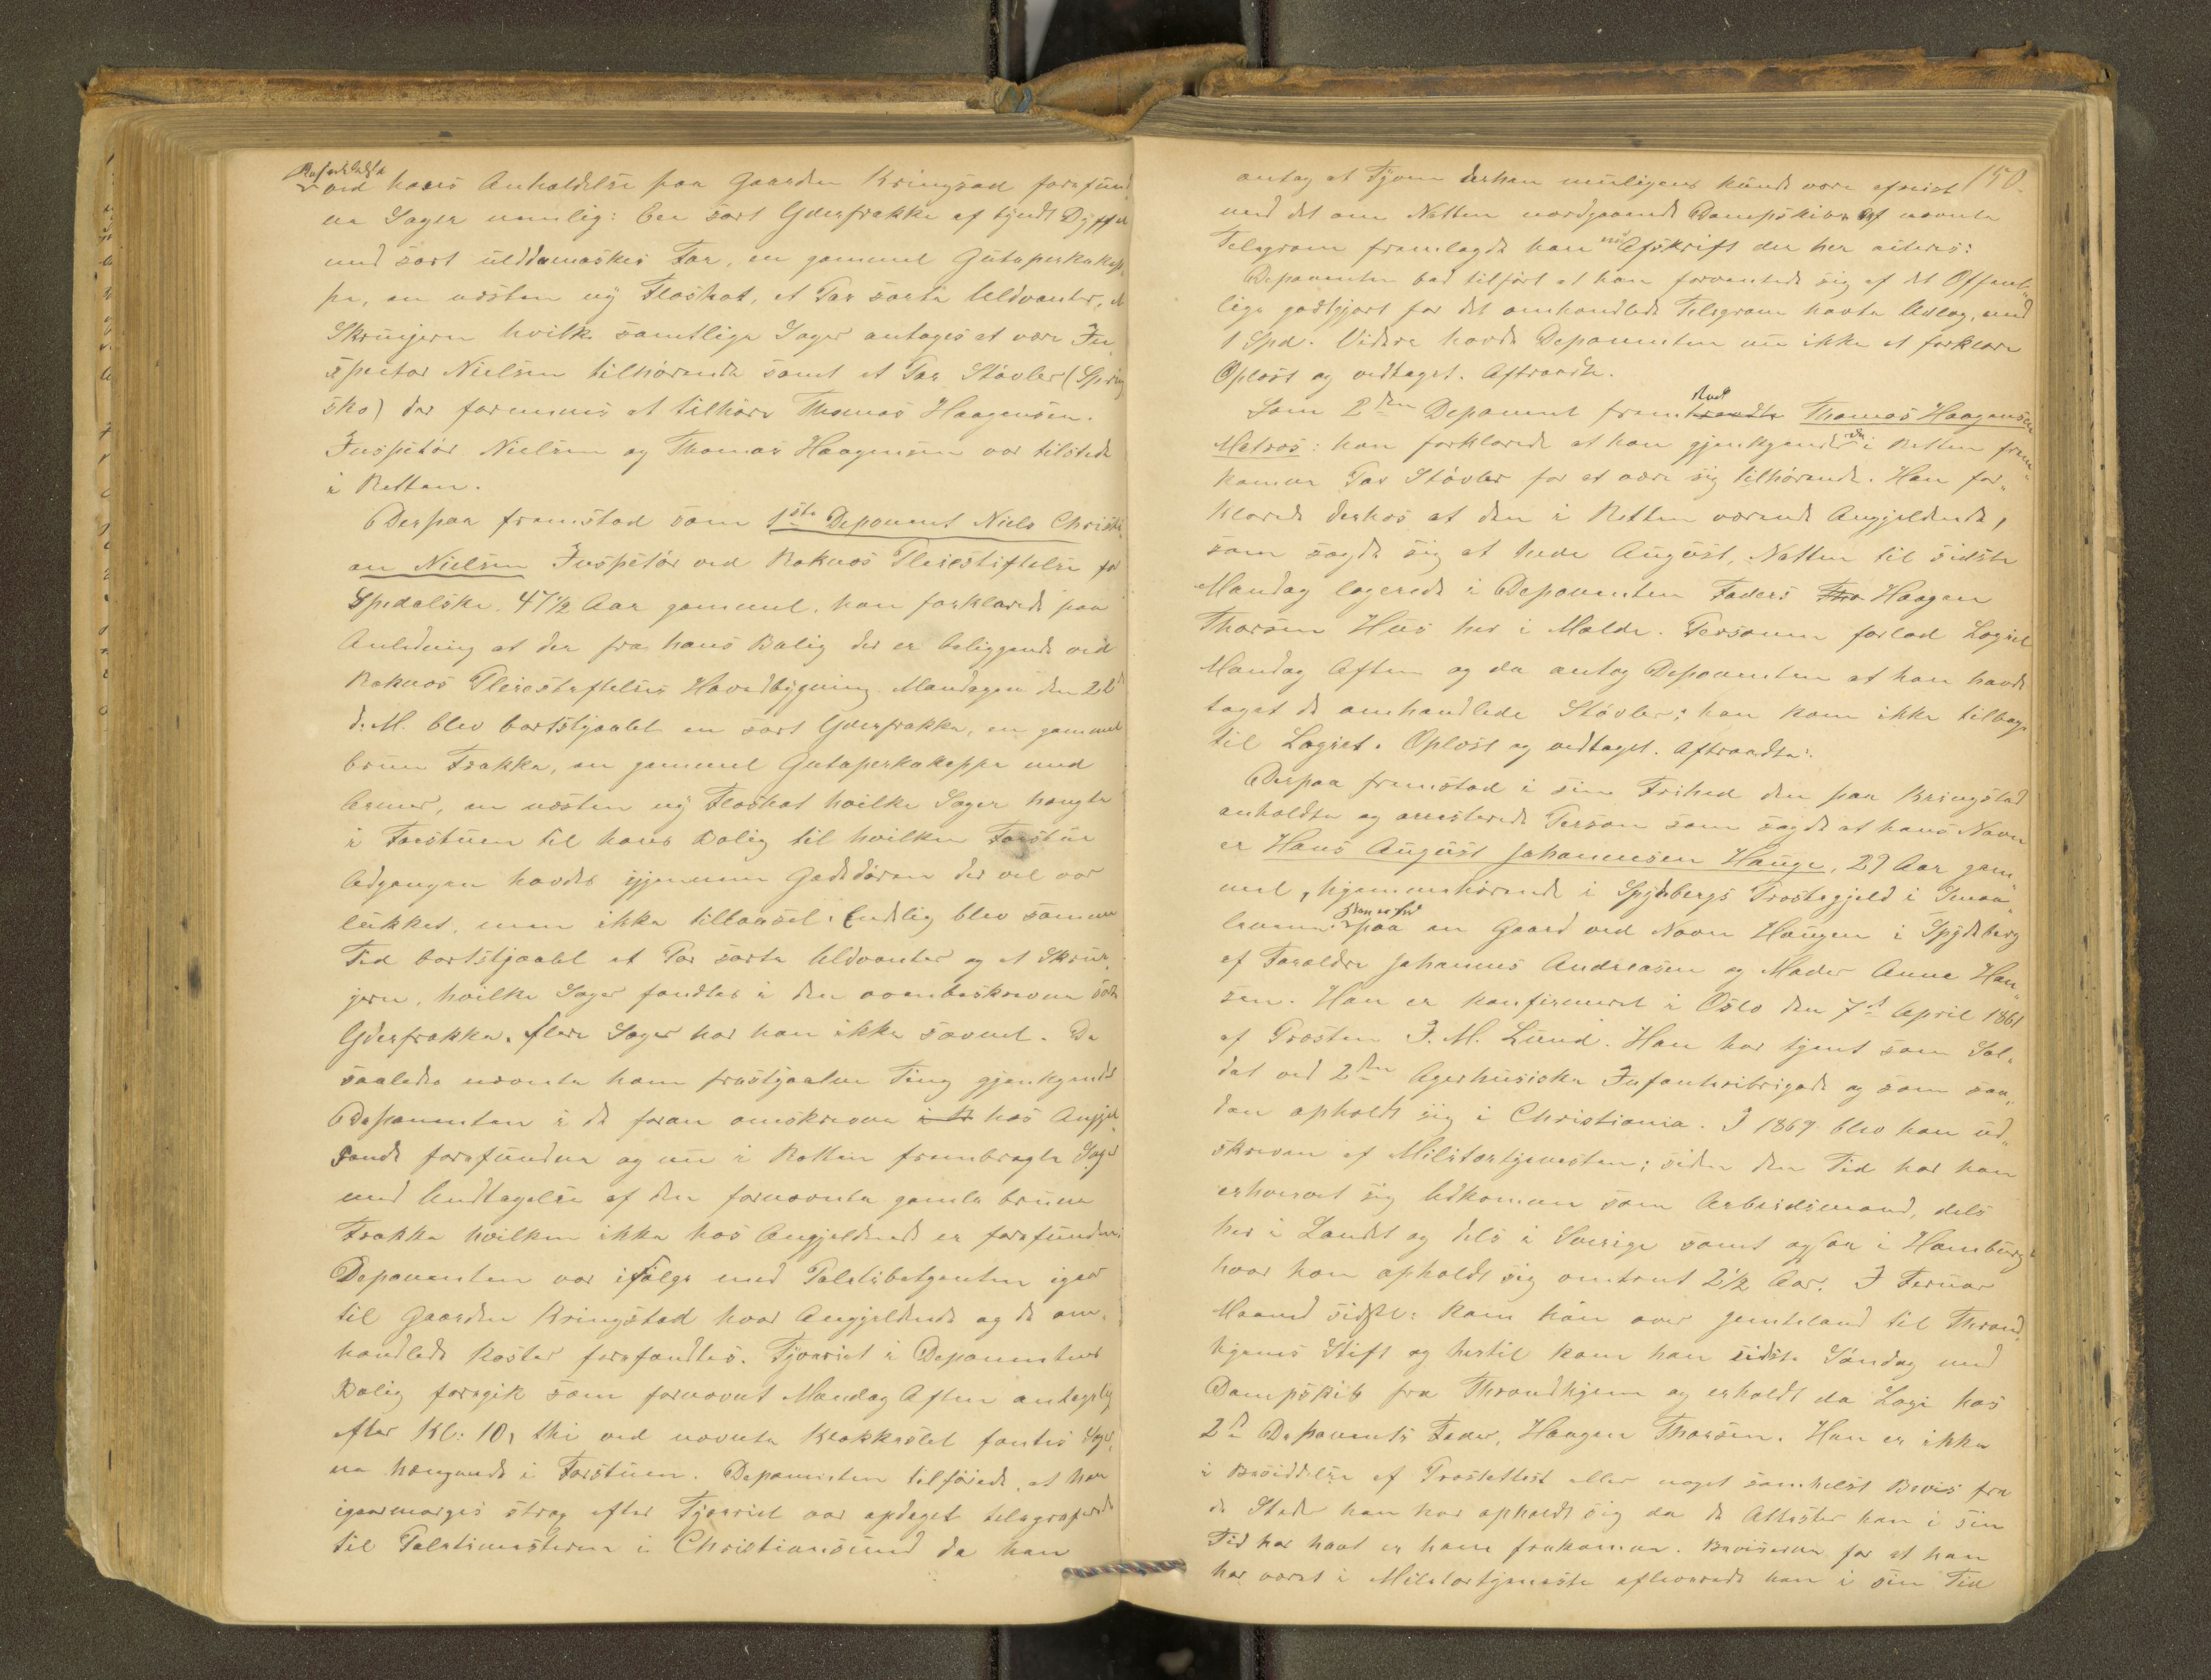 ved hans Anholdelse paa Gaarden Kringstad forefund„
ne Sager nemlig: Een sort Yderfrakke af tyndt Dyffel
med sort ulddamaskes Foer, en gammel Gutaperkakap„
pe, en næsten ny Floshat, et Par sorte Uldvanter, et
Skruejern hvilke samtlige Sager antages at være In„
spector Nielsen tilhørende samt et Par Støvler (Spring
sko) der formenes at tilhøre Thomas Haagensen.
Inspektør Nielsen og Thomas Haagensen var tilstede
i Retten.
Derpaa fremstod som 1ste Deponent Niels Christi„
an Nielsen Inspektør ved Reknes Pleiestiftelse for
Spedalske. 47½ Aar gammel, han forklarede paa
Anledning at der fra hans Bolig der er beliggende ved
Reknes Pleiestiftelses Hovedbygning Mandagen den 22de
d. M. blev bortstjaalet en sort Yderfrakke, en gammel
brun Frakke, en gammel Gutaperkakappe med
Ærmer, en næsten ny Floshat hvilke Sager hængte
i Forstuen til hans Bolig til hvilken Forstue
Adgangen havdes igjennem Gadedøren der vel var
lukket, men ikke tillaaset. Endelig blev samme
Tid bortstjaalet et Par sorte Uldvanter og et Skrue„
jern, hvilke Sager fandtes i den ovenbeskrevne sorte
Yderfrakke. flere Sager har han ikke savnet. De
saaledes nævnte ham frastjaalne Ting gjenkjendte
Deponenten i de foran omskrevne i R hos Angjel„
dende forefundne og nu i Retten frembragte Sager
med Undtagelse af den fornævnte gamle brune
Frakke hvilken ikke hos Angjeldende er forefunden.
Deponenten var ifølge med Politibetjenten igaar
til Gaarden Kringstad hvor Angjeldende og de om„
handlede Koster forefandtes. Tyveriet i Deponentens
Bolig foregik som fornævnt Mandag Aften antagelig
efter Kl: 10, thi ved nævnte Klokkeslet fantes Sager„
ne hængende i Forstuen. Deponenten tilføiede, at han
igaarmorges strax efter Tyveriet var opdaget telegraferede
til Politimesteren i Christiansund da han
150.
antog at Tyven derhen muligens kunde være afreist
med det om Natten nordgaaende Dampskib. Af nævnte
Telegram fremlagde han en Afskrift der her aiteres:
Deponenten bad tilført at han forventede sig af det Offent„
lige godtgjort for det omhandlede Telegram havte Udlæg, med
1 Spd. Videre havde Deponenten nu ikke at forklare
Oplæst og vedtaget. Aftraadte.
Som 2den Deponent fremtraadte stod Thomas Haagensen
Matros: han forklarede at han gjenkjender de i Retten frem„
komne Par Støvler for at være sig tilhørende. Han for„
klarede derhos at den i Retten værende Angjeldende,
som sagde sig at hede August, Natten til sidste
Mandag logerede i Deponenten Faders Tho Haagen
Thorsen Huus her i Molde. Personen forlod Logiet
Mandag Aften og da antog Deponenten at han havde
taget de omhandlede Støvler; han kom ikke tilbage
til Logiet. Oplæst og vedtaget. Aftraadte.
Derpaa fremstod i sin Frihed den paa Kringstad
anholdte og arresterede Person som sagde at hans Navn
er Hans August Johannesen Hauge, 27 Aar gam„
mel, hjemmehørende i Spydebergs Præstegjeld i Smaa„
lenene. Han er fød paa en Gaard ved Navn Haugen i Spydeberg
af Forældre Johannes Andreasen og Moder Anne Han„
sen. Han er konfirmeret i Oslo den 7de April 1861
af Presten J. M. Lund. Han har tjent som Sol„
dat ved 2den Agerhusiske Infanteribrigade og som saa„
dan opholdt sig i Christiania. I 1869 blev han ud„
skreven af Militærtjenesten; siden den Tid har han
erhvervet sig Udkommen som Arbeidsmand, dels
her i Landet og dels i Sverige samt ogsaa i Hamburg
hvor han opholdt sig omtrent 2½ Aar. I Feruar
Maaned sidstl: kom han over Jemteland til Thrond„
hjems Stift og hertil kom han sidste Søndag med
Dampskib fra Throndhjem og erholdt da Logi hos
2de Deponents Fader, Haagen Thorsen. Han er ikke
i Besiddelse af Presteattest eller noget somhelst Bevis fra
de Steder han har opholdt sig da de Attester han i sin
Tid har havt er ham frakommen. Beviserne for at han
har været i Militærtjeneste afleverede han i sin Tid